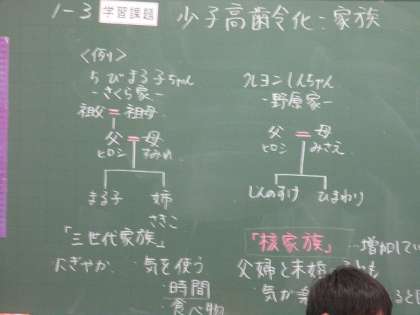 1-3 学習課題 少子高齢化:家族
〈例〉
ちびまる子ちゃん
-さくら家-
祖父=祖母
父=母
ヒロシ すみれ
まる子 姉
さきこ
「三世代家族」
にぎやか 気を使う
・時間
・食べ物
クレヨンしんちゃん
-野原家-
父=母
ヒロシ みさえ
しんのすけ ひまわり
「核家族」…増加してい
父婦と未婚
気が